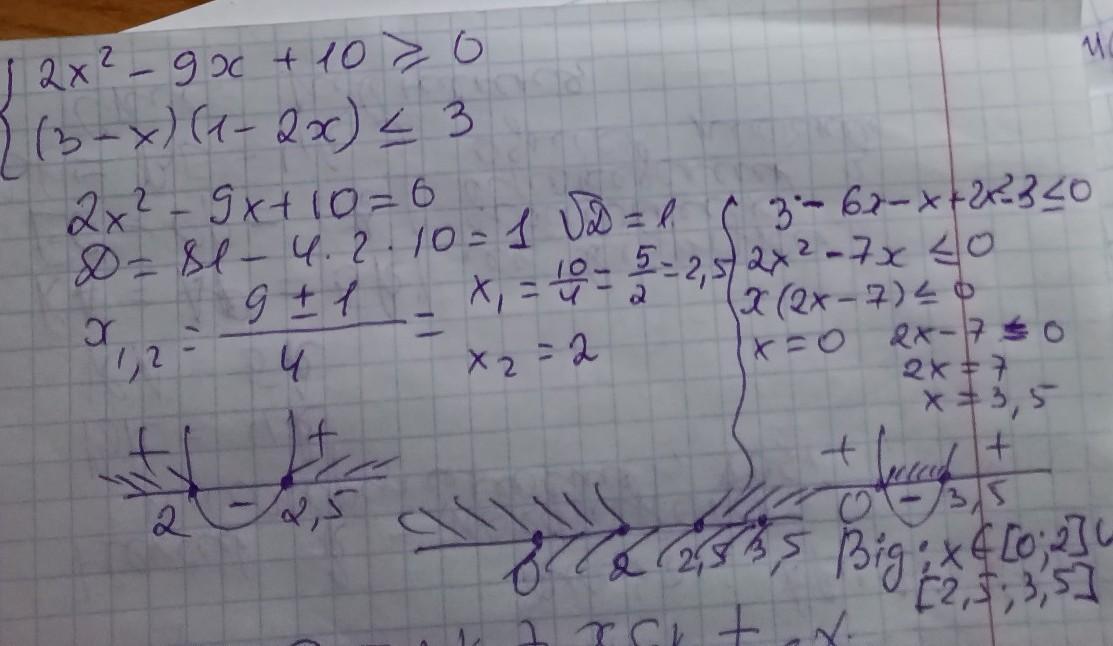 2x² - 9x + 10 ≥ 0
(3 - x)(1 - 2x) ≤ 3
2x² - 9x + 10 = 0
D = 81 - 4 · 2 · 10 = 1 √D = 1
x₁,₂ = (9 ± 1)/4 =
x₁ = 10/4 = 5/2 = 2,5
x₂ = 2
3 - 6x - x + 2x² - 3 ≤ 0
2x² - 7x ≤ 0
x(2x - 7) ≤ 0
x = 0 2x - 7 = 0
2x = 7
x = 3,5
+ - +
2 2,5
+ - +
0 3,5
0 2 2,5 3,5
Віg: x ∈ [0; 2] ∪
[2,5; 3,5]